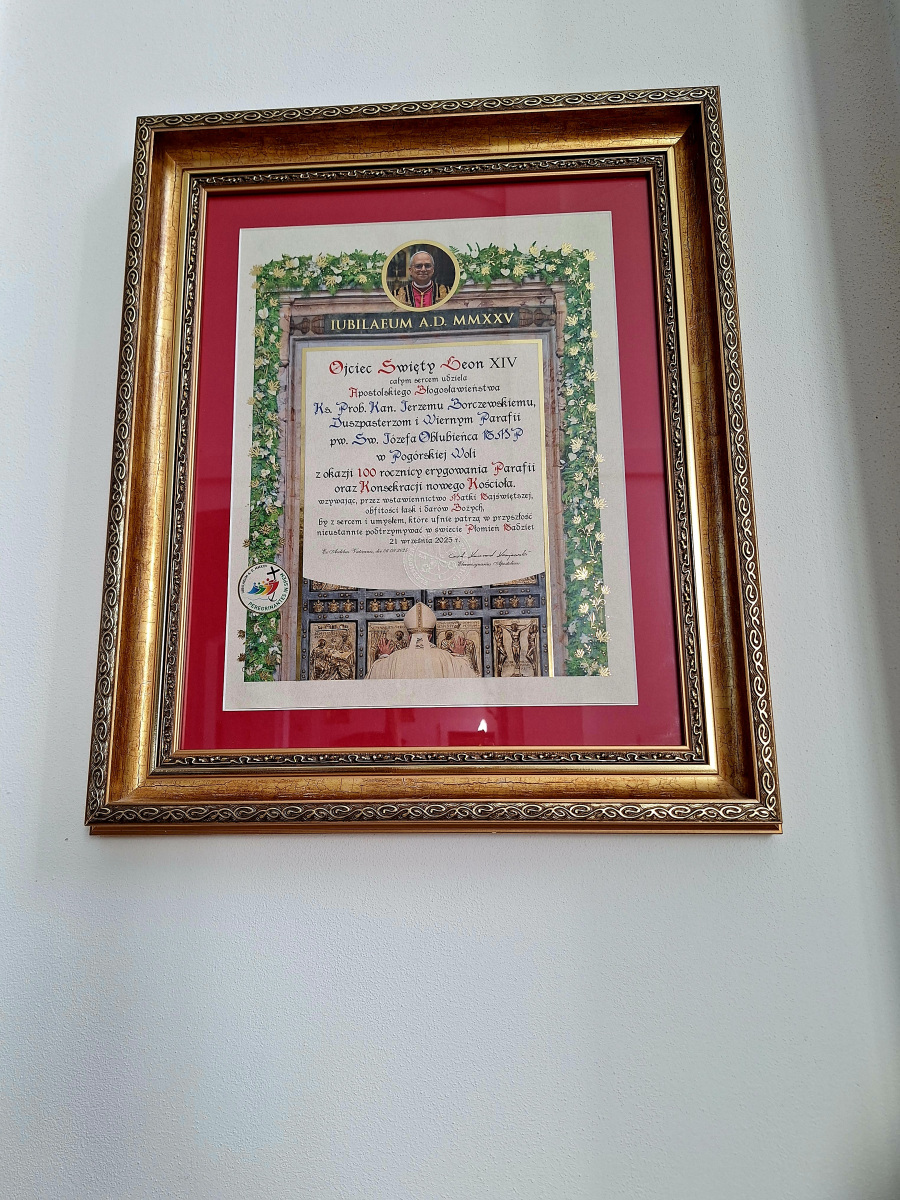 IUBILAEUM A.D. MMXXV
Ojciec Święty Leon XIV
całym sercem udziela
Apostolskiego Błogosławieństwa
Ks. Prob. Kan. Jerzemu Borczewskiemu,
Duszpasterzom i Wiernym Parafii
pw. Św. Józefa Oblubieńca BMP
w Pogórskiej Woli
z okazji 100 rocznicy erygowania Parafii
oraz Konsekracji nowego Kościoła.
wzywając, przez wstawiennictwo Matki Najświętszej,
obfitości łask i darów Bożych,
by z sercem i umysłem, które ufnie patrzą w przyszłość
nieustannie podtrzymywać w świecie Płomień Nadziei
21 września 2025 r.
Ex Aedibus Vaticanis, die
PEREGRINANTES IN SPEM